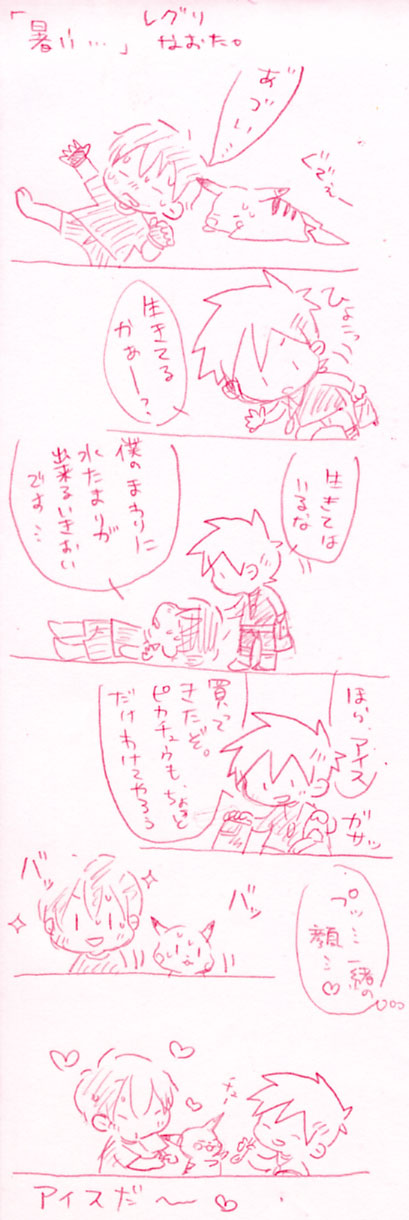 「暑い…」
レグリ
なおた。
あ゛づい゛ぃ
ぐでぇー
ひょこっ
生きてる
かぁー?
生きては
いるな
僕のまわりに
水たまりが
出来るいきおい
です…
ほら、アイス
買って
きたぞ。
ピカチュウも、ちょっと
だけわけてやろう
ガサッ
バッ
バッ
プッ…一緒の
顔…♡
アイスだ〜♡